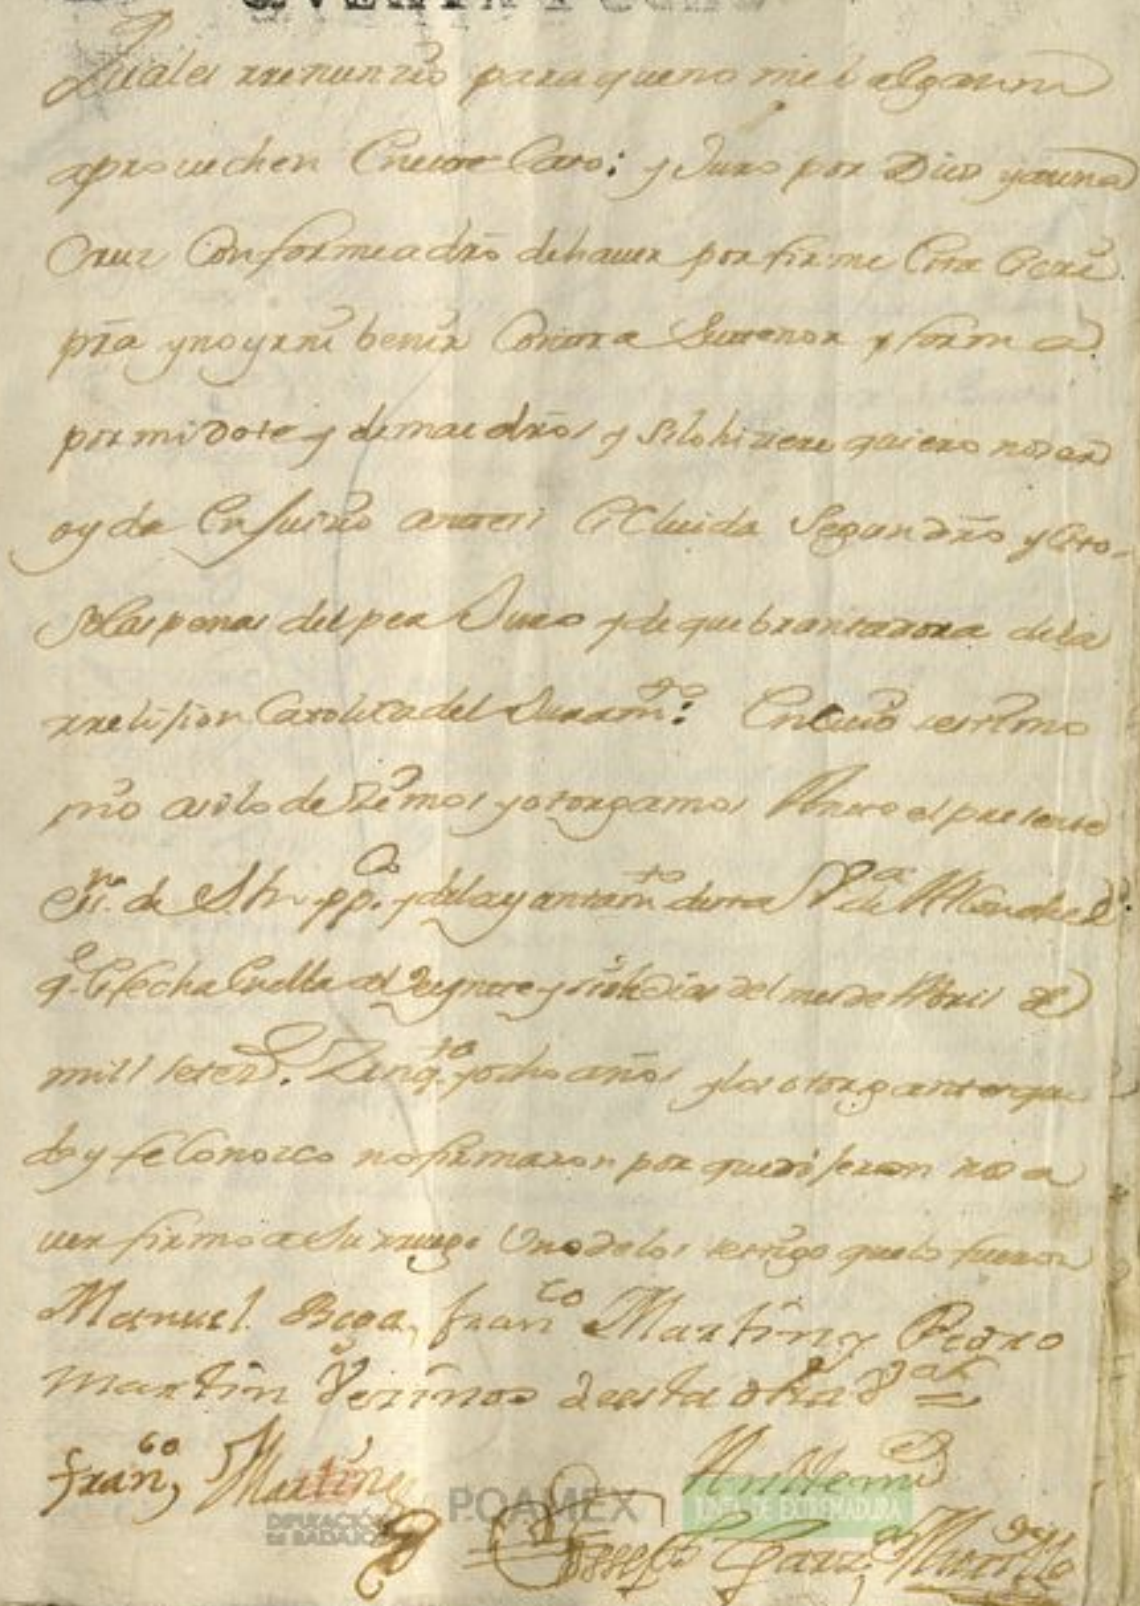 QVENTA Y OCHO
Quales rrenunzio para queno me balgan ni
aprouechen Eneste Caso; y Juro por Dios y auna
Cruz Conforme a dro dehauer por firme Esta Escri
pra y no yr ni benir Contra Su thenor y forma
por mi dote y demas dros y silo hiziere quiero no ser
oyda En Juizio antes si Excluida Segun dro y Esto
Solas penas del perJuro y de quebrantadora dela
rrelijion Catolica del Juramto: En cuio testimo
nio asi lo dezimos y otorgamos Ante el presente
Essno de S. M. ppco y del ayuntamto desta Va de
q.e Es fecha En ella a Veynte y siete dias del mes de Abril de
mill seteztos Zinqta y ocho años y los otorgantes que
doy fe Conozco no firmaron por que dijeron no sa
ver firmo a Su ruego Uno delos testigos que lo fueron
Manuel Bega, franco Martin y Pedro
Martin Vezinos de esta dha Va
franco, Martin
Ante mi
Josseph Garzia Murillo
DIPUTACIÓN DE BADAJOZ
POAMEX
JUNTA DE EXTREMADURA